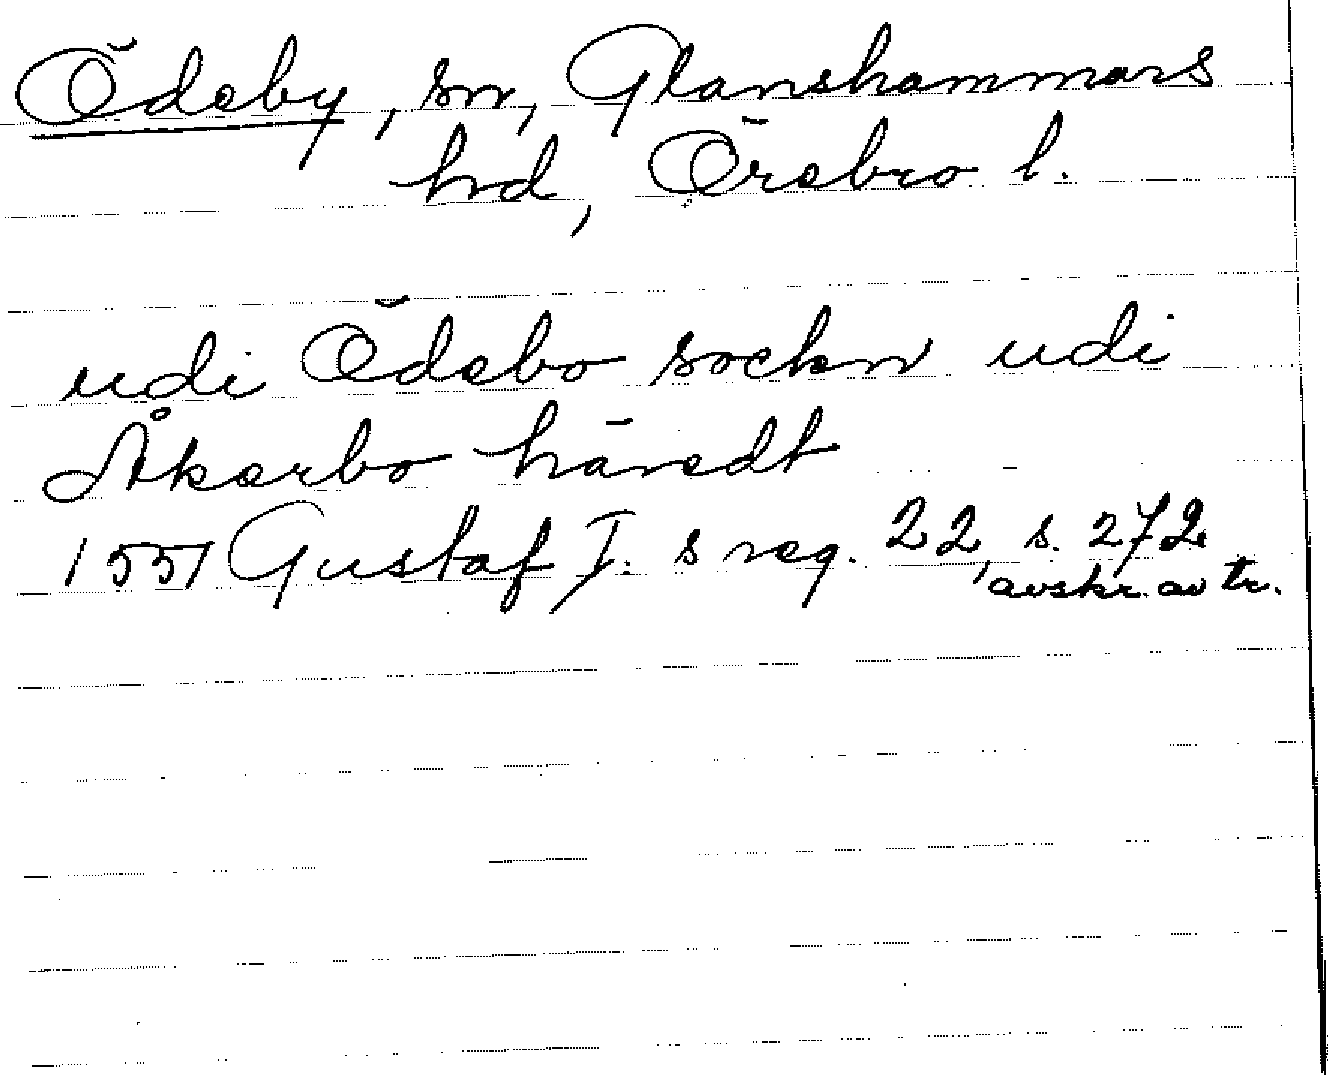 Ödeby, sn, Glanshammars
hd, Örebro l.
udi Ödebo sockn udi
Åkerbo häredt
1551 Gustaf I. s reg. 22, s. 272
avskr. av tr.